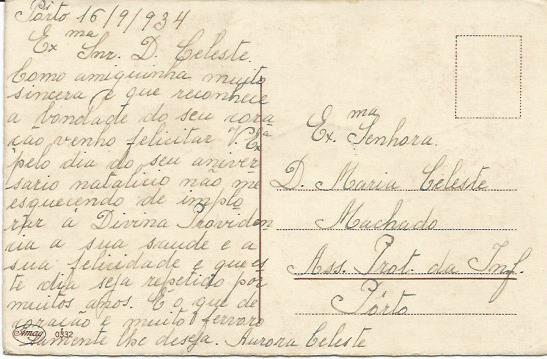 Pôrto 16/9/934
Exma Snr. D. Celeste.
Como amiguinha muito
sincera e que reconhece
a bondade do seu cora
ção venho felicitar V. Exa
pelo dia do seu aniver
sario natalicio não me
esquecendo de implo
rar á Divina Providen
cia a sua saude e a
sua felicidade e que es
te dia seja repetido por
muitos anos. É o que de
coração e muito fervoro
samente lhe deseja. Aurora Celeste
Amag 0332
Exma Senhora.
D. Maria Celeste
Machado
Ass. Prot. da Inf.
Pôrto